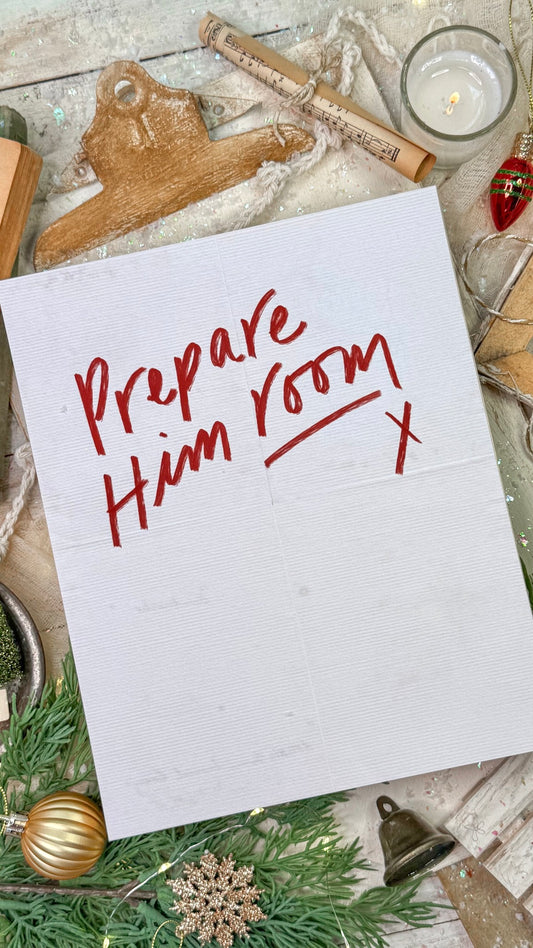 Prepare
Him room
x